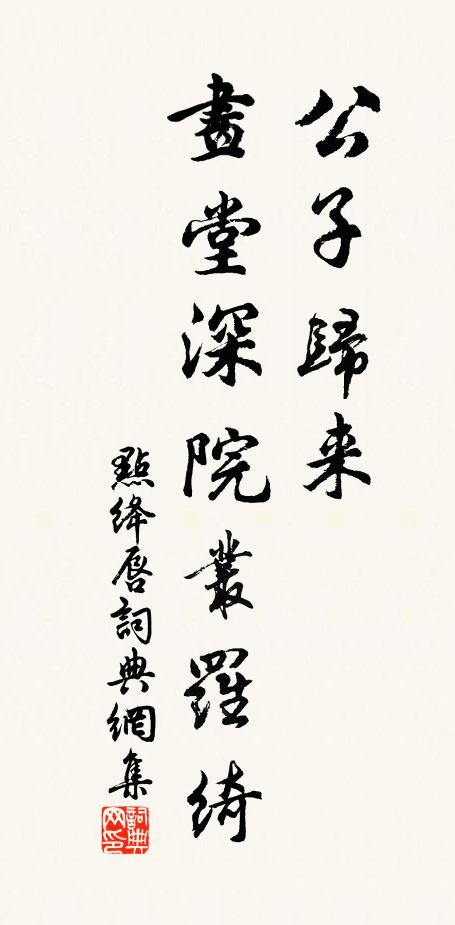 公子歸来
畫堂深院叢羅綺
點绛唇詞典網集
詞典网印